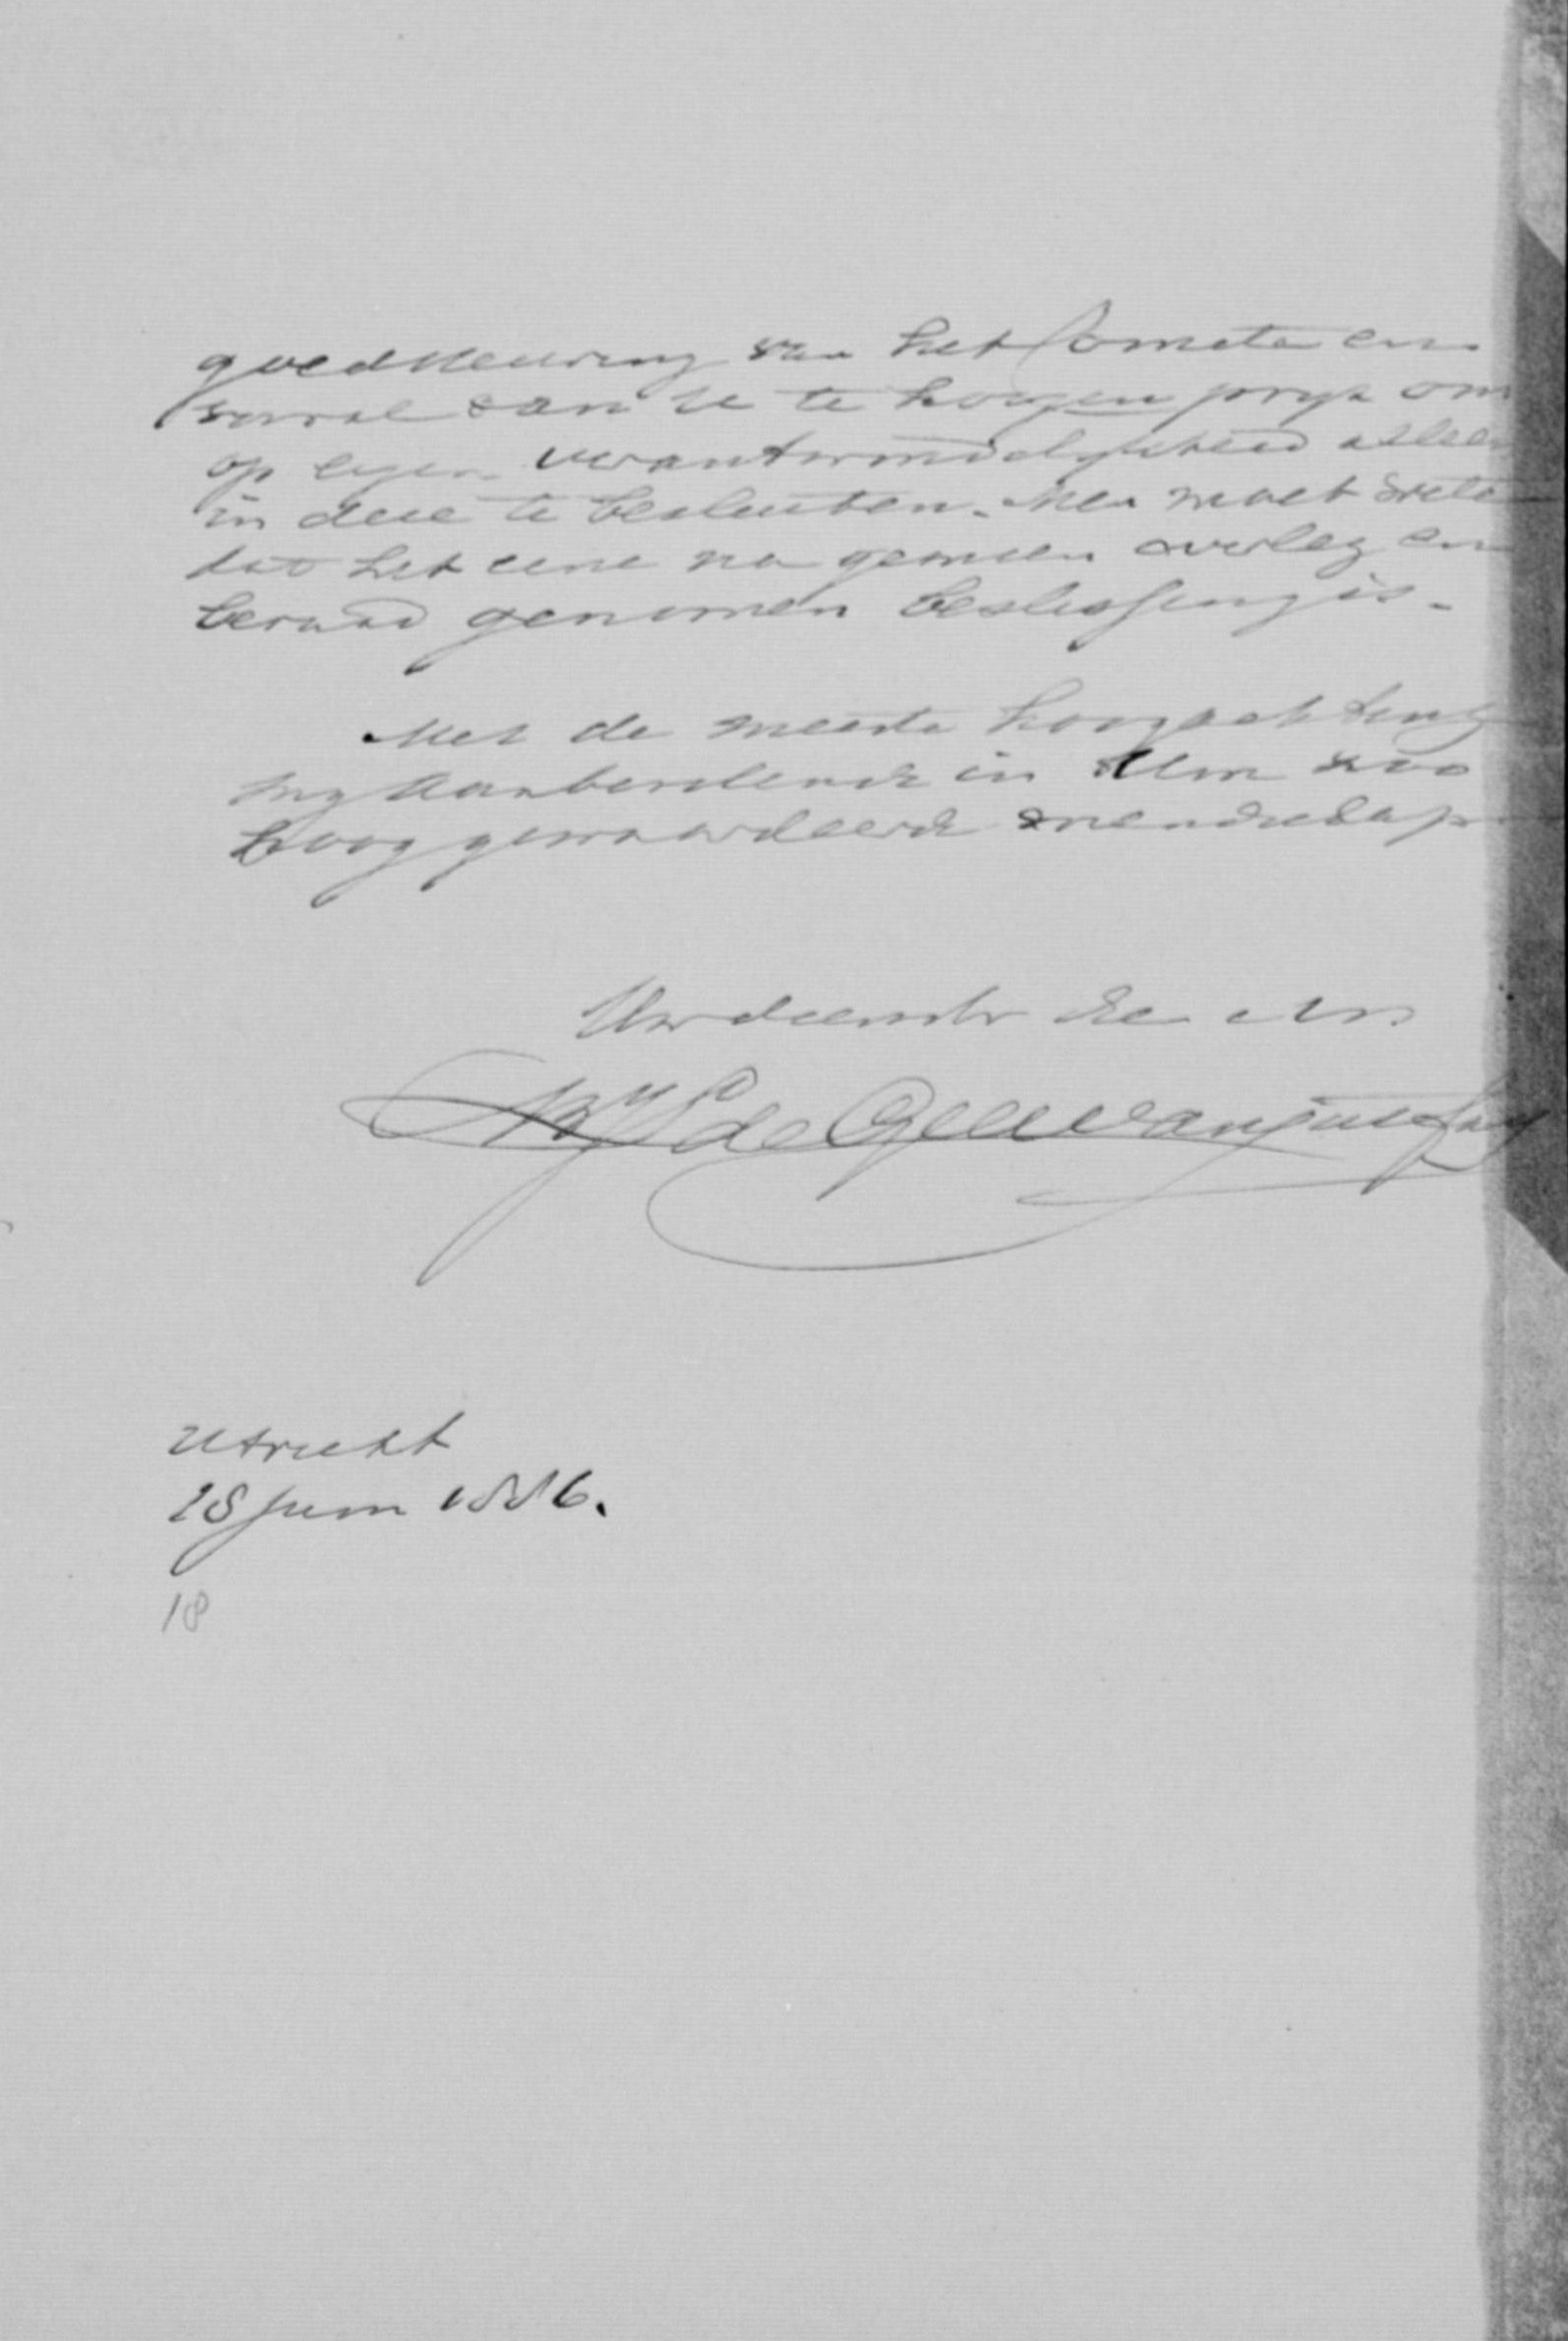 goedkeuring van het Comite en
vooral van U te hoogen prys om
op eigen verantwoordelykheid alleen
in deze te besluiten. Men moet weten
dat het eene na gemeen overleg en
beraad genomen beslissing is.
Met de meeste hoogachting
my aanbevelende in Uw zoo
hooggewaardeerde vriendschap
Uw dienstv
de Geer van Jutfaas
Utrecht
18 Juni 1886.
18